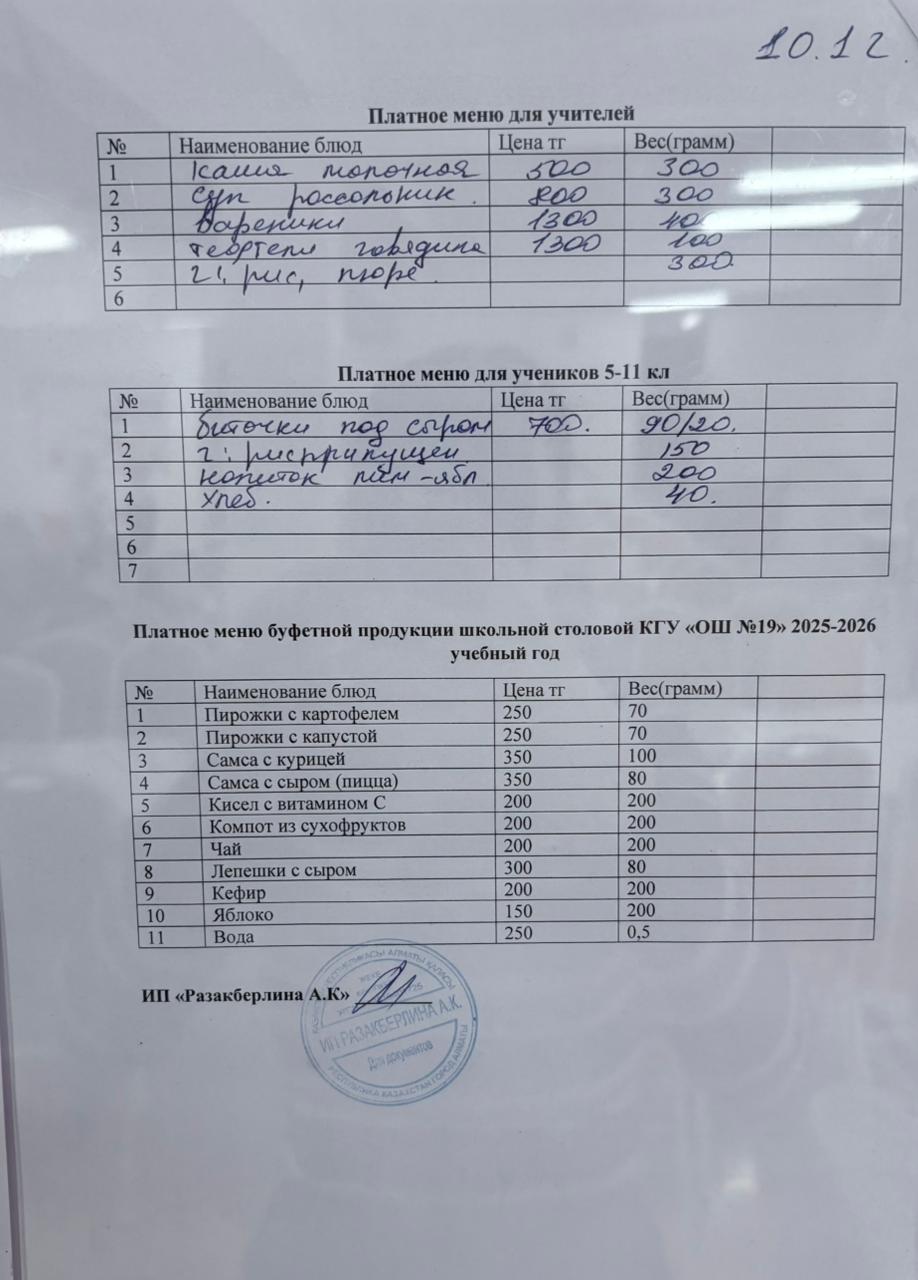 10.12.
Платное меню для учителей
№ Наименование блюд Цена тг Вес(грамм)
1 Каша молочная 500 300
2 Суп россольник. 800 300
3 Вареники 1300
4 говядина 1300 100
5 г: рис, пюре. 300
6
Платное меню для учеников 5-11 кл
№ Наименование блюд Цена тг Вес(грамм)
1 биточки под сыром 700. 90/20.
2 г: рис припущен 150
3 напиток лим-ябл 200
4 Хлеб. 40.
5
6
7
Платное меню буфетной продукции школьной столовой КГУ «ОШ №19» 2025-2026
учебный год
№ Наименование блюд Цена тг Вес(грамм)
1 Пирожки с картофелем 250 70
2 Пирожки с капустой 250 70
3 Самса с курицей 350 100
4 Самса с сыром (пицца) 350 80
5 Кисел с витамином С 200 200
6 Компот из сухофруктов 200 200
7 Чай 200 200
8 Лепешки с сыром 300 80
9 Кефир 200 200
10 Яблоко 150 200
11 Вода 250 0,5
ИП «Разакберлина А.К»
ИП РАЗАКБЕРЛИНА А.К.
Для документов
РЕСПУБЛИКА КАЗАХСТАН ГОРОД АЛМАТЫ